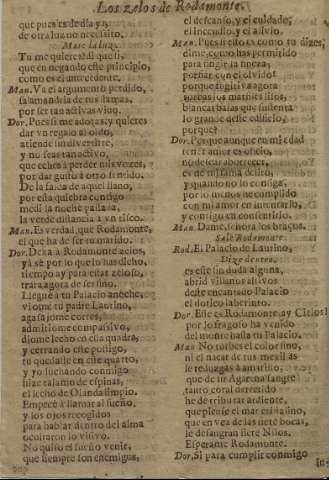 Los zelos de Rodamonte.
que pues es de dia ya
de otra luz no necesito.
Mate la luz.
Tu me quieres?
que en negando este principio,
como es el antecedente.
Man. Va el argumento perdido,
salamandra de tus llamas,
por ser tan activas vivo.
Dor. Pues si me adoras, y quieres
dar vn regalo al oido,
atiende sin divertirte,
y no seas tan activo,
que quiera perder mis vozes,
por dar gusto a otro sentido.
De la falda de aquel llano,
por esta quiebra contigo
medi la noche passada,
la verde distancia a vn risco.
Man. Es verdad, que Rodamonte,
el que ha de ser tu marido.
Dor. Dexa à Rodamonte aora,
ya sè por lo que lo has dicho,
tiempo ay para estar zeloso,
trata agora de ser fino.
Lleguè a tu Palacio anoche,
viome tu padre Laurino,
agasajome cortes,
admitiome compassivo,
diome lecho en essa quadra,
y cerrando este postigo,
tu quedaste en esse quarto,
y yo luchando conmigo
hize talamo de espinas,
el lecho de Olanda limpio.
Empecè à llamar al sueño,
y los ojos recogidos
para hablar dentro del alma
ocultaron lo visivo.
No quiso el sueño venir,
que siempre son enemigos,
el descanso, y el cuidado;
el incendio, y el alivio.
Man. Pues si esto es como tu dizes,
dime, ecco no has permitido
para fingir la fineza,
poner con el olvido?
porque fugitiva agora
blancas basas que sustenta
lo grande deste edificio?
porque?
Dor. Porque aunque en mi edad
no dexar aborrecer,
es de mi fama delito,
y quando no lo consiga,
por lo menos he cumplido
con mi amor en intentarlo,
y contigo en consentirlo.
Man. Dame, señora los braços.
Sale Rodamonte.
Rod. El Palacio de Laurino,
Dize dentro.
es este sin duda alguna,
abrid villanos altivos
deste encantado Palacio
el dorico laberinto.
Dor. Este es Rodamonte, ay Cielos!
por lo fragoso ha venido
del monte hasta tu Palacio.
Man. No turbes el color fino,
ni el nacar de tus mexillas
le reduzgas à amarillo;
que de tu Agarena sangre
tanto coral derretido
he de tributar ardiente,
que piense el mar cristalino,
que en vez de las siete bocas,
se desangran siete Nilos.
Espere Rodamonte.
Dor. Si para cumplir conmigo